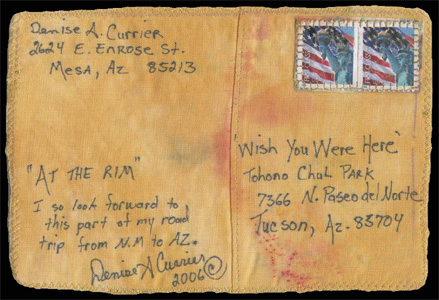 Denise A. Currier
2624 E. Enrose St.
Mesa, Az 85213
"AT THE RIM"
I so look forward to
this part of my road
trip from N.M to AZ.
Denise A Currier
2006 ©
"Wish You Were Here"
Tohono Chul Park
7366 N. Paseo del Norte
Tucson, Az. 83704